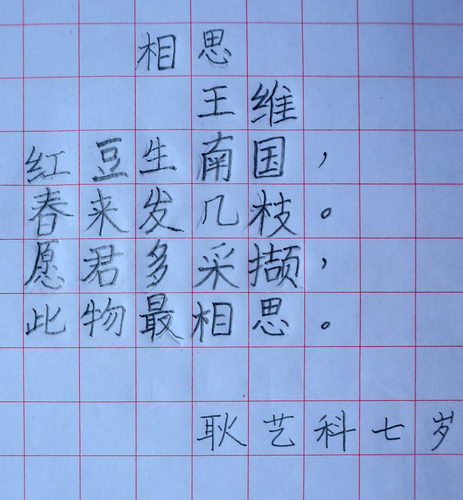 相思
王维
红豆生南国，
春来发几枝。
愿君多采撷，
此物最相思。
耿艺科七岁